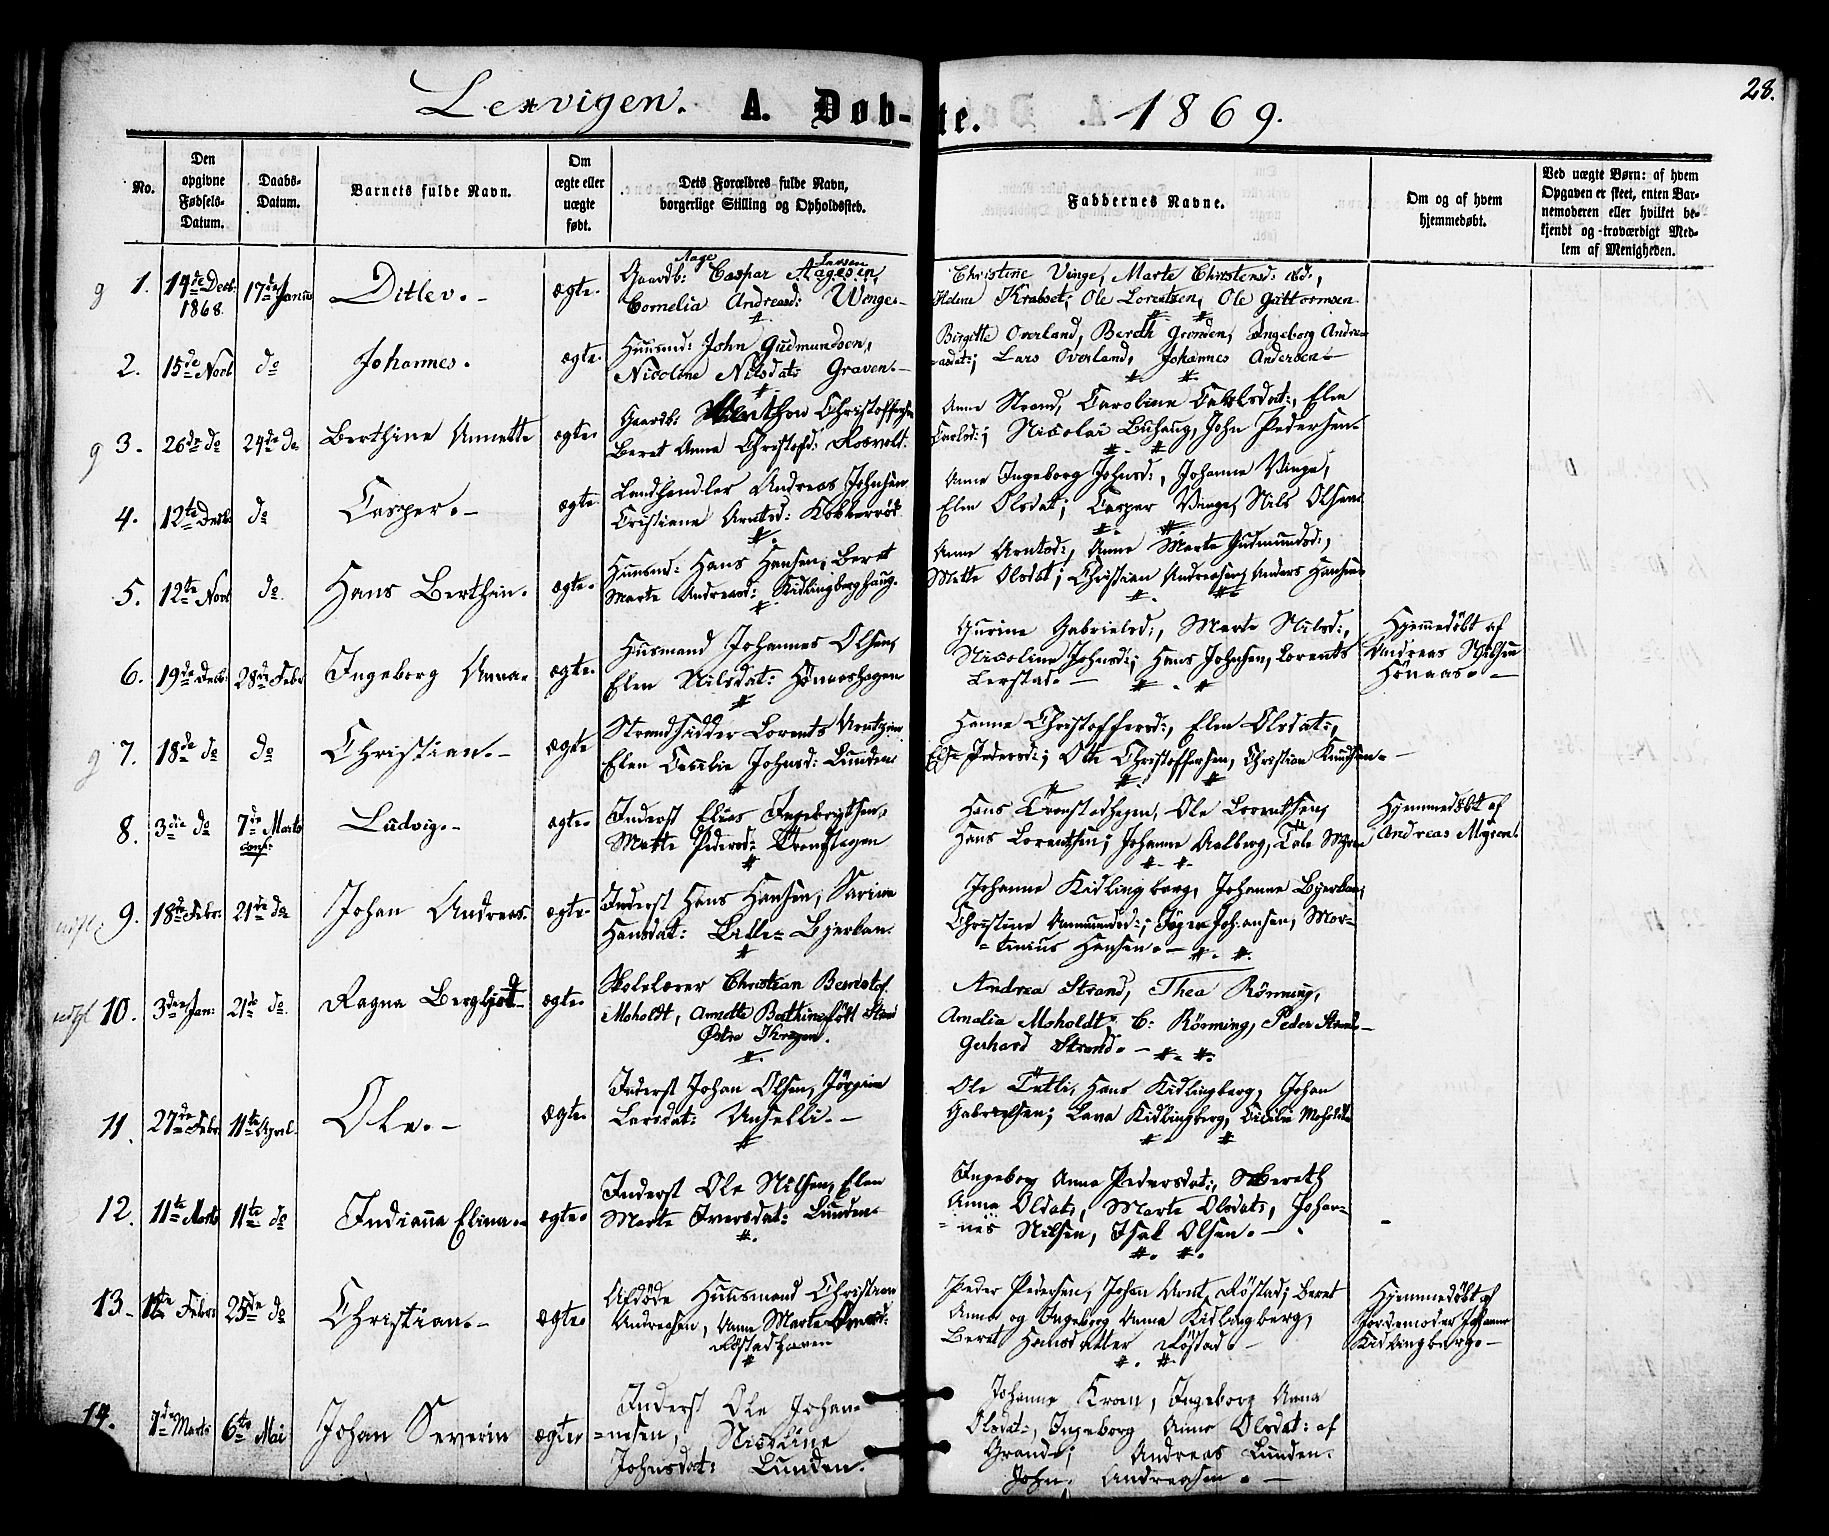 Lexvigen. A. Døb- te. 1869. 28.
No.
Den opgivne Fødsels-Datum.
Daabs-Datum.
Barnets fulde Navn.
Om ægte eller uægte født.
Dets Forældres fulde Navn, borgerlige Stilling og Opholdssted.
Faddernes Navne.
Om og af hvem hjemmedøbt.
Ved uægte Børn: af hvem Opgaven er skeet, enten Barnemoderen eller hvilket bekjendt og troværdigt Medlem af Menigheden.
g 1. 14de Decb. 1868. 17de Januar Ditlev. ægte. Gaardb: Caspar Aagesen,
Cornelia Andreasd: Winge.
Christine Vinge, Marte Christensd:
Helene Krabset; Ole Lorentsen, Ole Guttormsen
2. 15de Novb do Johannes. ægte. Huusmd: John Gudmundsen,
Nicoline Nilsdat: Graven.
Birgitte Overland, Bereth Grønden, Ingeborg Andre-
asdat; Lars Overland, Johannes Andersen
g 3. 26de do 24de do Berthine Annette ægte. Gaardb: Christoffersen
Beret Anna Christofd: Rosvolt.
Anne Strand, Caroline Carlsdat:, Elen
Carlsd:; Nicolai Buhaug, John Pedersen.
4. 12te Decb. do Casper. ægte. Landhandler Andreas Johnsen
Cristiane Arntsd: Kobberrød
Anne Ingeborg Johnsd:, Johanna Vinge,
Elen Olsdat; Casper Vinge, Nils Olsen
5. 12te Novb do Hans Berthin. ægte. Huusmd: Hans Hansen, Beret
Marte Andreasd: Kidlingberghaug.
Anne Arntsd:, Anne Marte Gudmundsd:,
Mette Olsdat; Christian Andreasen, Anders Hansen
6. 19de Decb: 28de Febr Ingeborg Anna. ægte. Husmand Johannes Olsen,
Elen Nilsdat: Hönaashagen
Gurine Gabrielsd:, Marte Nilsd:,
Nicoline Johnsd:; Hans Johnsen, Lorents
Lerstad.
Hjemmedöbt af
Andreas Nilsen
Hönaas.
g 7. 18de do do Christian. ægte Strandsidder Lorents Arntzen
Elen Cecilie Johnsd: Lunden
Hanna Christoffersd:, Elen Olsdat:,
Else Pedersd:; Ole Christoffersen, Christian Knudsen.
8. 3die do 7de Marts conf: Ludvig. ægte. Inderst Elias Ingebrigtsen,
Mette Pedersd: Tronsthagen
Hans Tronstadhagen, Ole Lorentsen,
Hans Lorentsen; Johanne Aalberg, Tale Myren
Hjemmedöbt af
Andreas Myren.
9. 18de Febr: 21de do Johan Andreas. ægte. Inderst Hans Hansen, Sarine
Hansdat: Lille-Bjerkan.
Johanne Kidlingberg, Johanne Bjerkan;
Christine Ammundsd:; Johansen, Mar-
tinius Hansen.
udgf 10. 3die Jan: 21de do. Ragna Bergljot ægte. Skolelærer Christian Berentsf.
Moholdt, Annette Bertine födt Strand
Østre Kragen.
Andrea Strand, Thea Rönning,
Amalia Moholdt; C: Rönning, Peder Strand
Gerhard Strand.
11. 27de Febr. 11te April Ole. ægte. Inderst Johan Olsen, Jörgine
Larsdat: Unselli.
Ole Tetli, Hans Kidlingberg, Johan
Gabrielsen; Lava Kidlingberg, Cicilie Moholdt
12. 11te Marts 11te do Indianna Elina. ægte. Inderst Ole Nilsen, Elen
Marte Iversdat: Lunden.
Ingeborg Anna Pedersdat:, Bereth
Anna Oldat, Marte Olsdat, Johan-
nes Nilsen, Isak Olsen.
13. Febr: 25de do Christian. ægte. Afdøde Huusmand Christian
Andreasen, Anne Marte
Röstadhaven
Peder Pedersen, Johan Arnt Röstad; Beret
Anna og Ingeborg Anna Kidlingberg,
Beret Hansdatter Röstad.
Hjemmedöbt af
Jordemoder Johanne
Kidlingberg.
14. 7de Marts 6te Mai Johan Severin ægte Inderst Ole Johan-
nesen, Nicoline
Johnsdat: Lunden.
Johanne Kroen, Ingeborg Anna
Olsdat:, Ingeborg Anne Olsdat: af
Grande; Andreas Lunden.
John Andreasen.